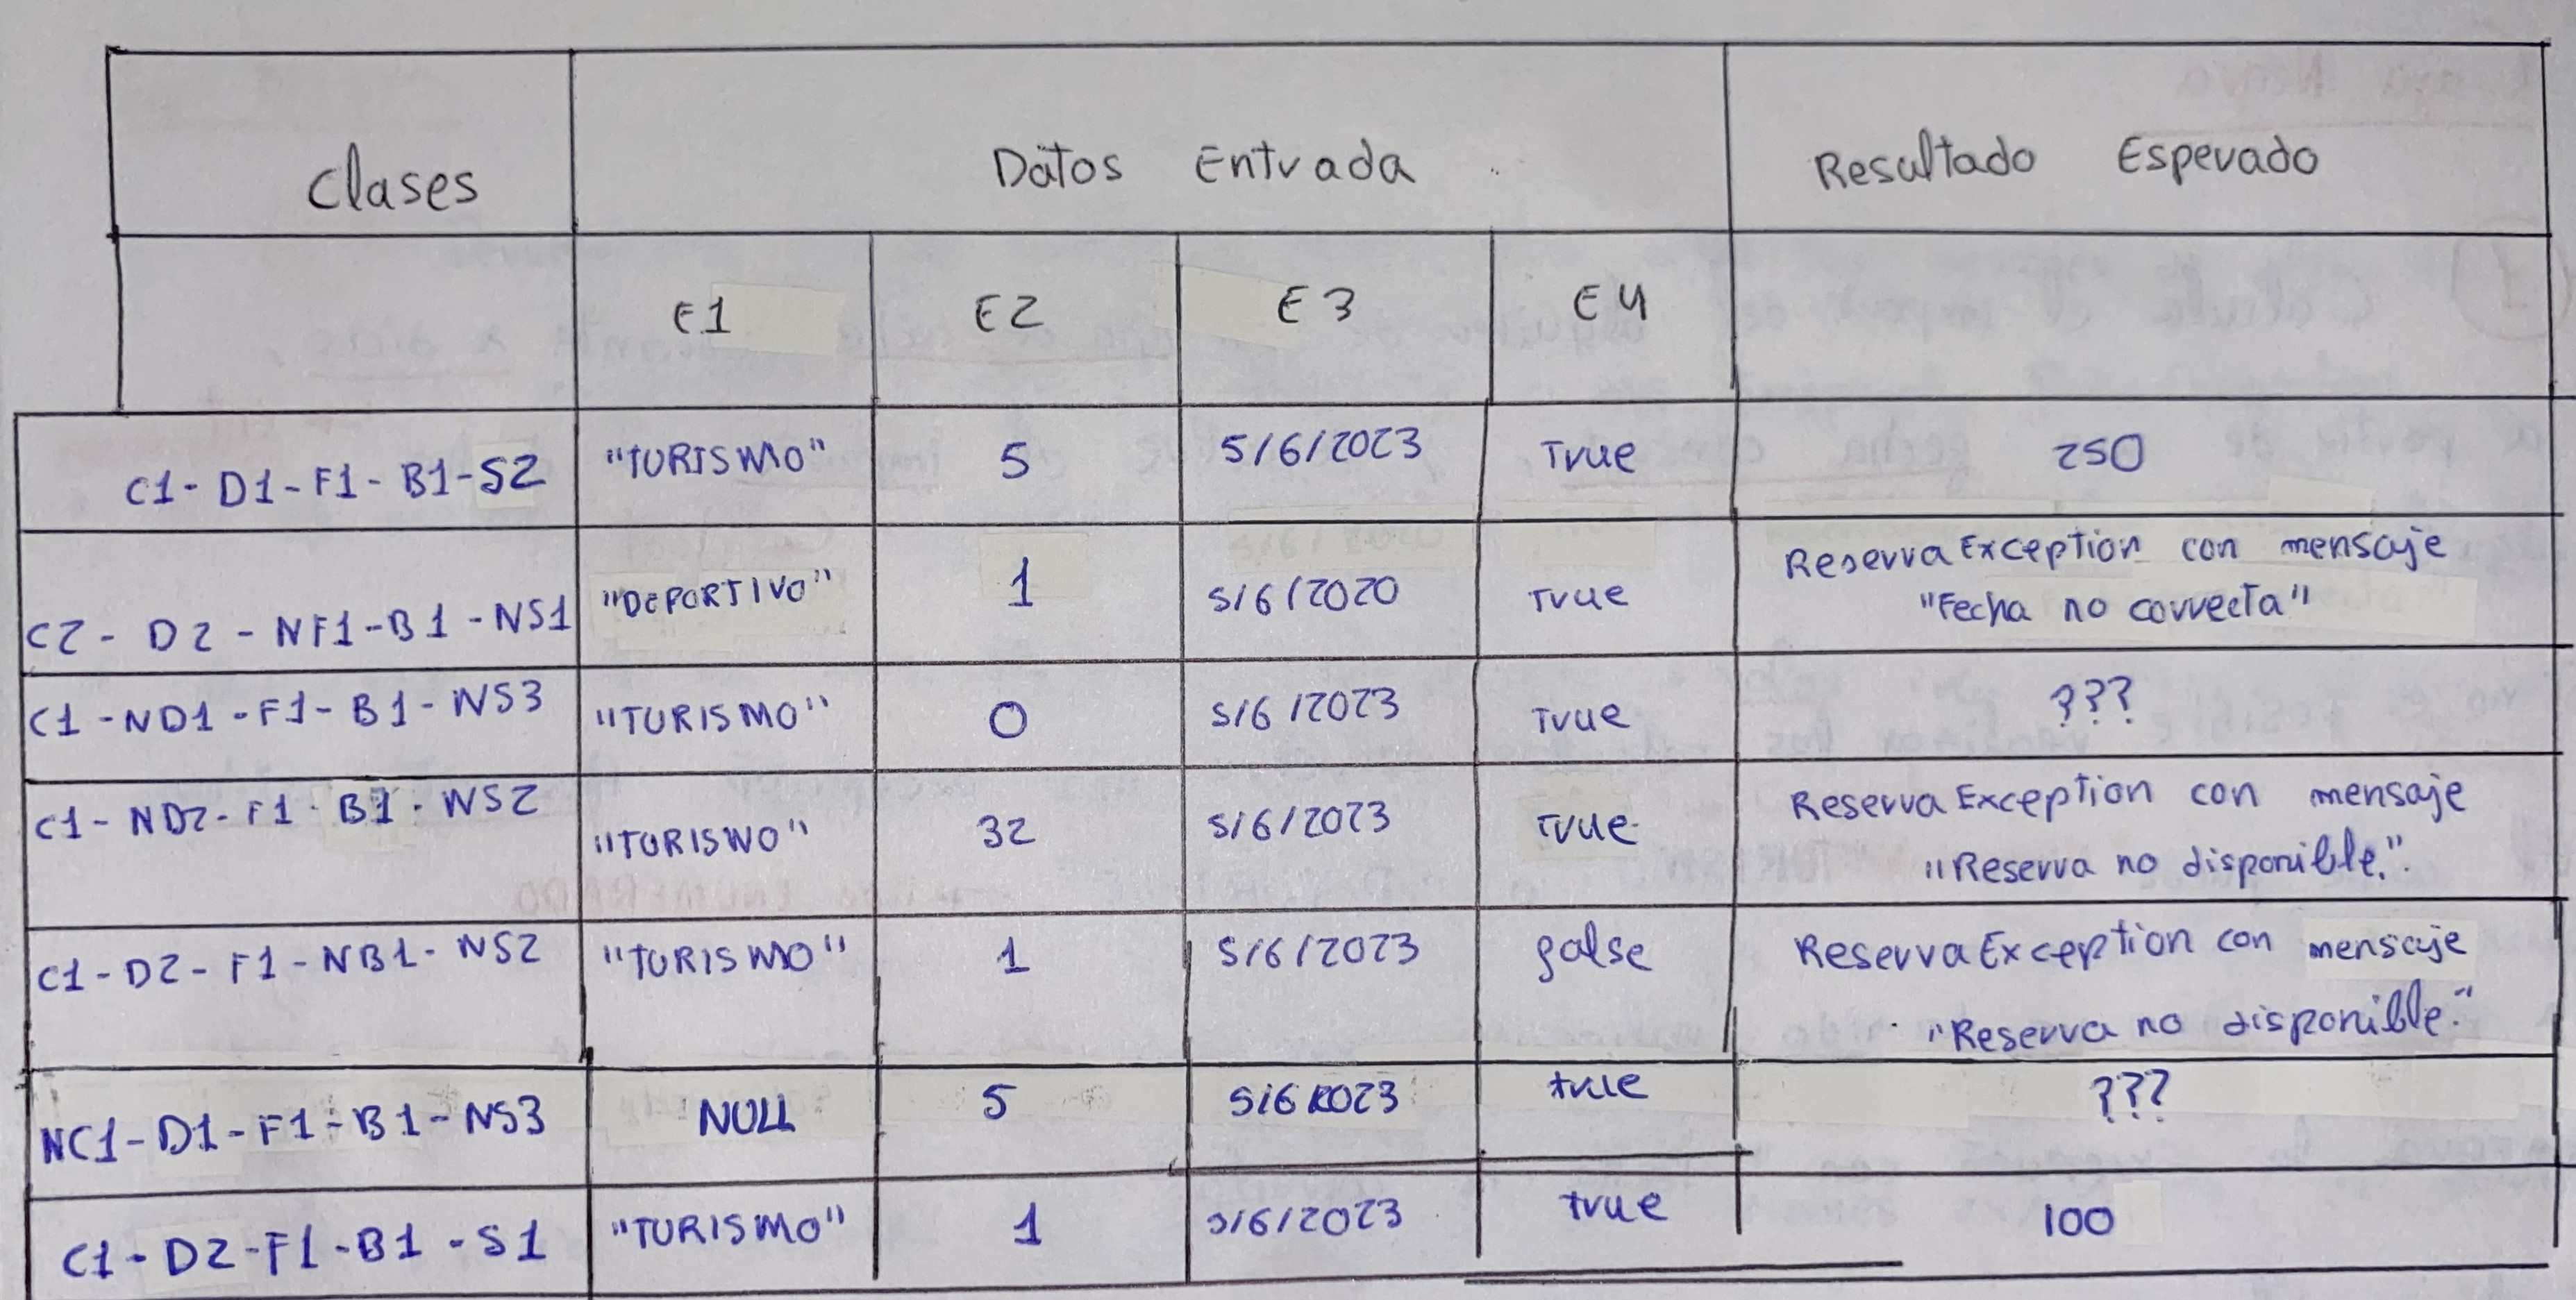 Clases Datos Entrada Resultado Esperado
E1 E2 E3 E4
C1-D1-F1-B1-S2 "TURISMO" 5 5/6/2023 True 250
C2-D2-NF1-B1-NS1 "DEPORTIVO" 1 5/6/2020 True ReservaException con mensaje
"Fecha no correcta"
C1-ND1-F1-B1-NS3 "TURISMO" 0 5/6/2023 True ???
C1-ND2-F1-B1-NS2 "TURISMO" 32 5/6/2023 True ReservaException con mensaje
"Reserva no disponible."
C1-D2-F1-NB1-NS2 "TURISMO" 1 5/6/2023 false ReservaException con mensaje
"Reserva no disponible."
NC1-D1-F1-B1-NS3 NULL 5 5/6/2023 true ???
C1-D2-F1-B1-S1 "TURISMO" 1 5/6/2023 true 100